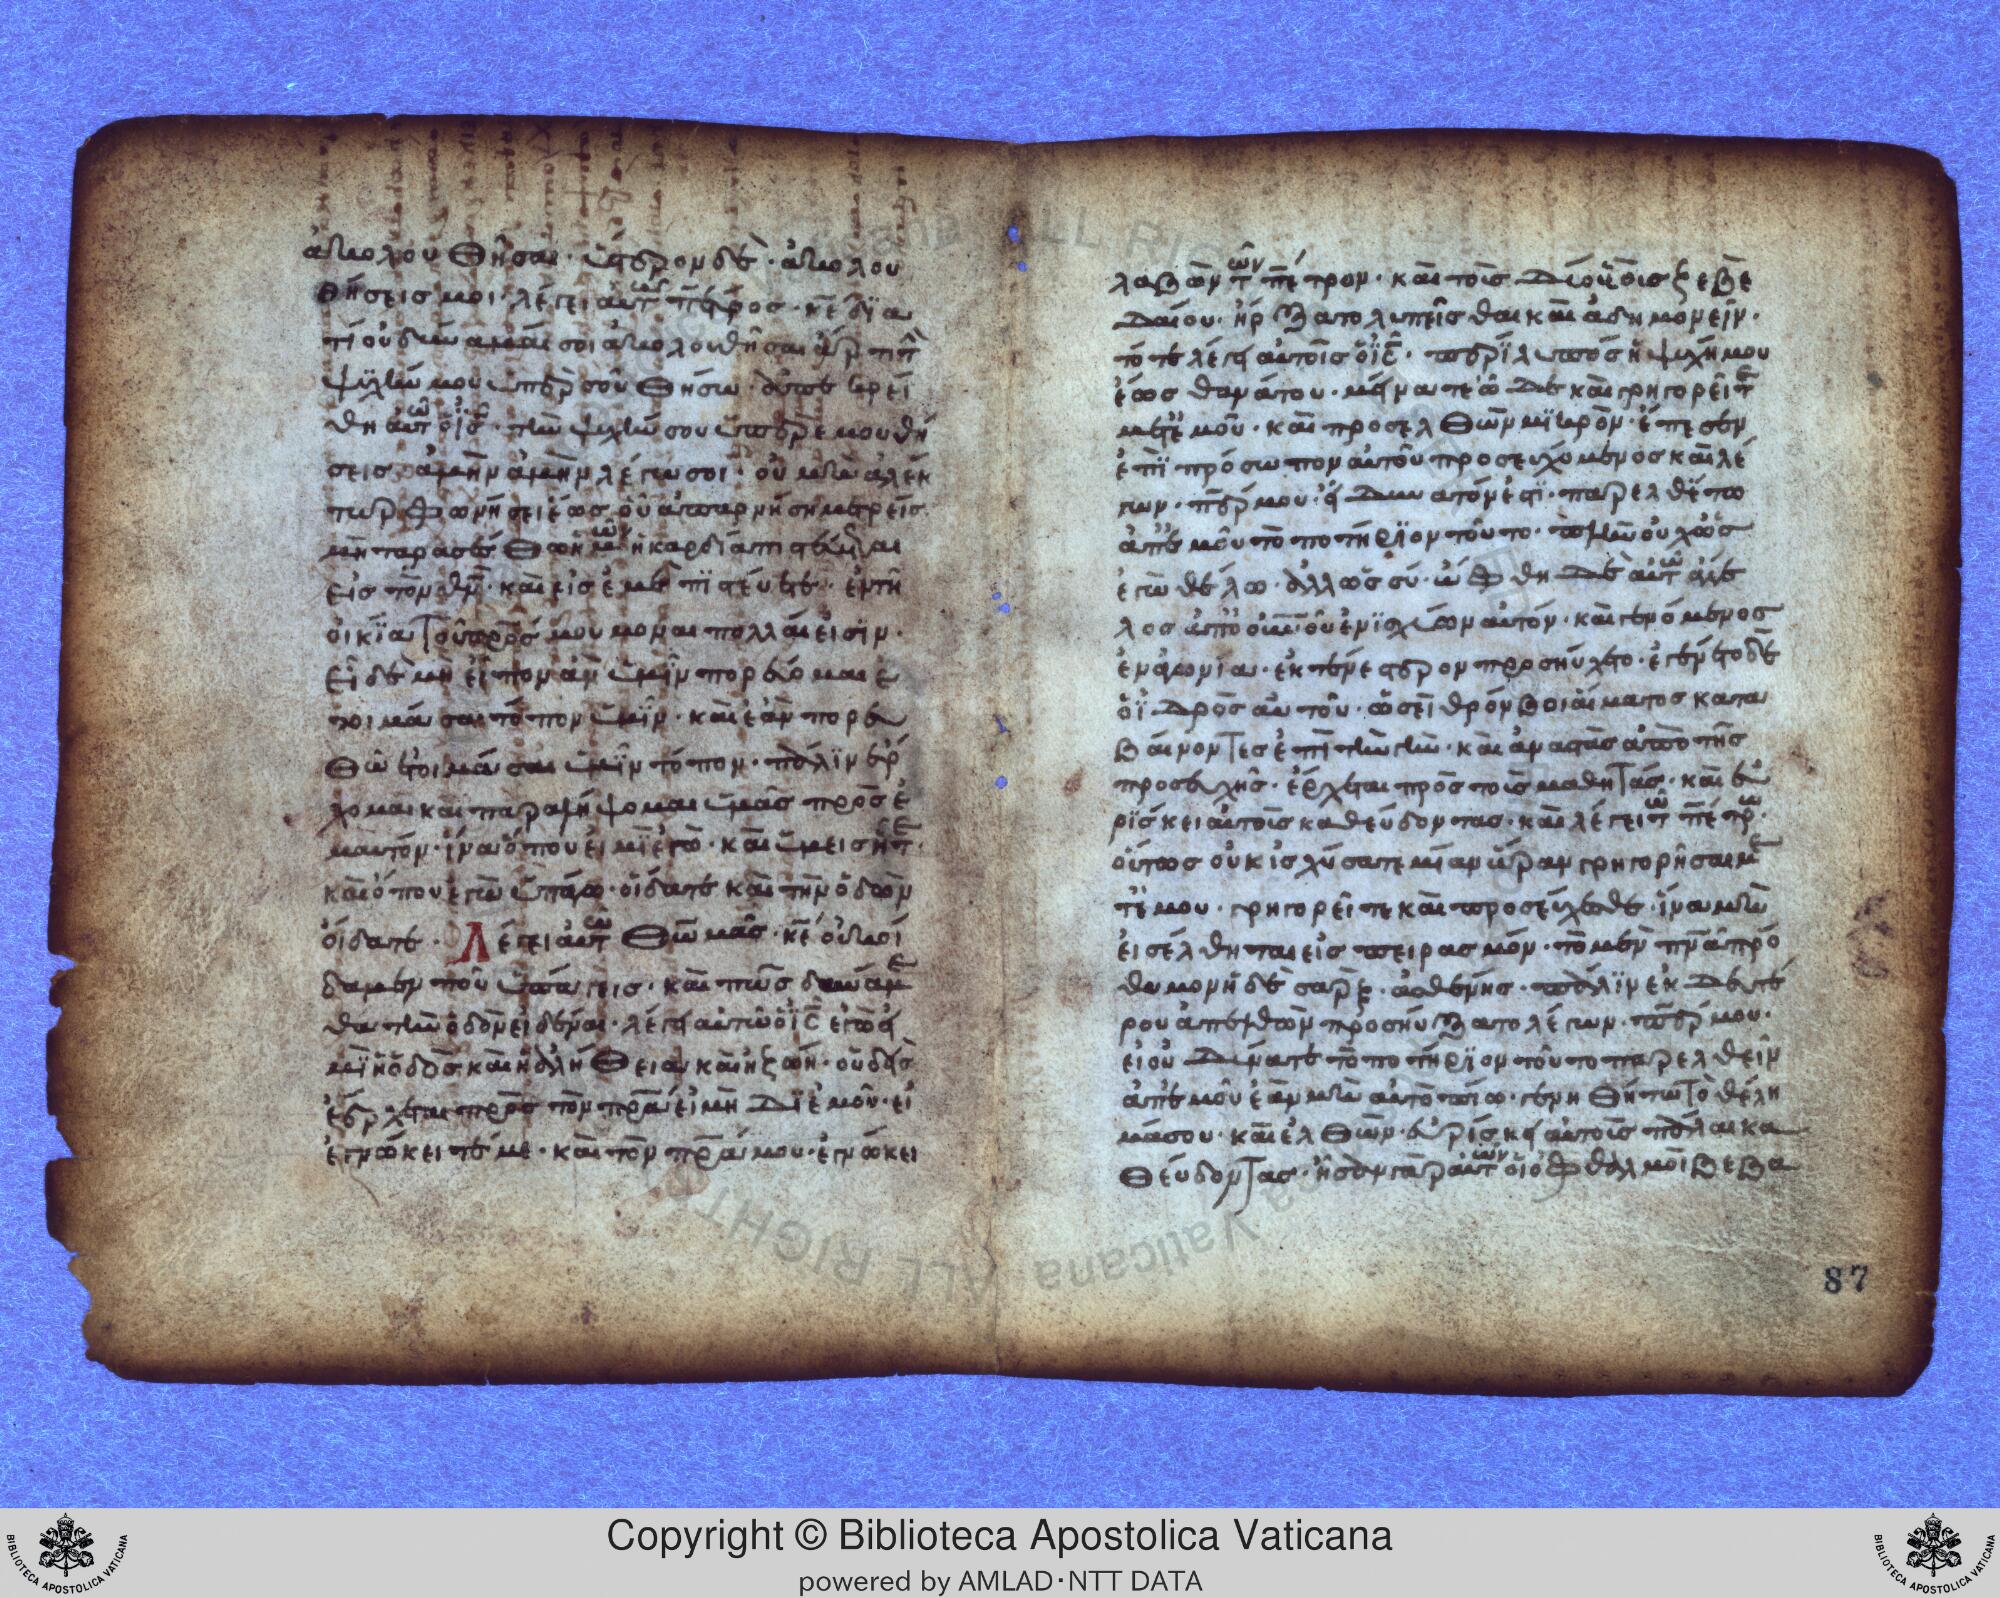 ἀκολουθῆσαι· ὕστερον δὲ· ἀκολου
θήσεις μοι· λέγει αὐτῶ πέτρος· κε δϊα
τί οὐ δύναμαί σοι ἀκολουθῆσαι ἄρτι τὴ
ψϋχήν μου ὑπὲρ σοῦ θήσω· ἀπεκρί
θη αὐτῶ ὁ ις· τὴν ψυχήν σου ὑπὲρ ἐμοῦ θή
σεις· ἀμὴν ἀμὴν λέγω σοι· οὐ μὴ ἀλέκ
τωρ φωνήσει ἕως οὗ ἀπαρνήση με τρείς·
μὴ ταρασσέσθω ὑμῶν ἡ καρδία πιστεύεται
εἰς τὸν θν· καὶ εἰς ἐμὲ πϊστεύετε· ἐν τῆ
οἰκϊα τοῦ πρός μου μοναι πολλαί εἰσϊν·
εἰ δὲ μὴ εἶπον ἂν ὑμῖν πορεύομαι ἑ
τοιμάσαι τόπον ὑμῖν· καὶ ἐὰν πορευ
θῶ ἑτοιμάσαι ὑμῖν τόπον· πάλϊν ἔρ
χομαι καὶ παραλήψομαι ὑμᾶς πρὸς ἐ
μαυτόν· ἵνα ὅπου εἰμὶ ἐγὼ· καὶ ὑμεις ἦτε·
καὶ ὅπου ἐγὼ ὑπάγω· οἴδατε καὶ τὴν ὁδὸν
οἴδατε· Λέγει αὐτῶ θωμᾶς· κε οὐκ οἴ
δαμεν ποῦ ὑπάγεις· καὶ πῶς δυνάμε
θα τὴν ὁδὸν εἰδέναι· λέγει αὐτῶ ὁ ις ἐγώ εἰ
μϊ ἡ ὁδὸς καὶ ἡ ἀλήθεια καὶ ἡ ζωή· οὐδεὶς
ἔρχεται πρὸς τὸν πρα εἰ μὴ δϊ ἐμοῦ· εἰ
ἐγνώκειτέ με· καὶ τὸν πρα μου· ἐγνώκει
λαβὼν τὸν πέτρον· καὶ τοὺς δύο ϋἱοὺς ζεβε
δαίου· ἤρξατο λυπεῖσθαι καὶ ἀδημονεῖν·
τότε λέγει αὐτοῖς ὁ ις· περίλυπός ἡ ψυχή μου
ἕως θανάτου· μείνατε ὧδε καὶ γρηγορεῖτε
μετ ἐμοῦ· καὶ προσελθὼν μϊκρὸν· ἔπεσεν
ἐπῒ πρόσωπον αὐτοῦ προσευχόμενος καὶ λέ
γων· περ μου· εἰ δυνατόν ἐστϊ· παρελθέτω
ἀπ ἐμοῦ τὸ ποτήρϊον τοῦτο· πλὴν οὐχ ὡς
ἐγὼ θέλω· ἀλλ ὡς σύ· ὤφθη δὲ αὐτῶ ἄγγε
λος ἀπ οὐνοῦ ἐνϊσχύων αὐτόν· καὶ γενόμενος
ἐν ἀγωνία· ἐκτενέστερον προσηύχετο· ἐγένετο δὲ
ὁ ϊδρὸς αὐτοῦ· ὡσεὶ θρόμβοι αἵματος κατα
βαίνοντες ἐπὶ τὴν γὴν· καὶ ἀναστὰς ἀπὸ τῆς
προσευχῆς· ἔρχεται πρὸς τοὺς μαθητάς· καὶ εὑ
ρϊσκει αὐτοὺς καθεύδοντας· καὶ λέγει τῶ πέτρω·
οὕτως οὐκ ἰσχύσατε μίαν ὥραν γρηγορῆσαι με
τ ἐμου· γρηγορεῖτε καὶ προσεύχεσθε· ἵνα μὴ
εἰσέλθηται εἰς πειρασμόν· τὸ μὲν πνα πρό
θυμον ἡ δὲ σαρξ· ἀσθενής· πάλϊν ἐκ δευτέ
ρου ἀπελθὼν προσηύξατο λέγων· περ μου·
εἰ οὐ δύναται τὸ ποτήρϊον τοῦτο παρελθεῖν
ἀπ ἐμοῦ ἐὰν μὴ αὐτὸ πίω· γενηθήτω τὸ θέλη
μά σου· καὶ ἐλθὼν· εὑρίσκει αὐτοὺς πάλαι κα
θεύδοντας· ἦσαν γὰρ αὐτῶν οἱ ὀφθαλμοὶ βεβα
87
Copyright © Biblioteca Apostolica Vaticana
powered by AMLAD·NTT DATA